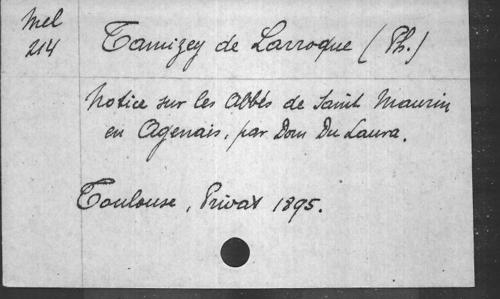 Mel
214
Tamizey de Larroque (Ph.)
Notice sur les Abbés de Saint Maurin
en Agenais, par Dom Du Laura.
Toulouse, Privat 1895.